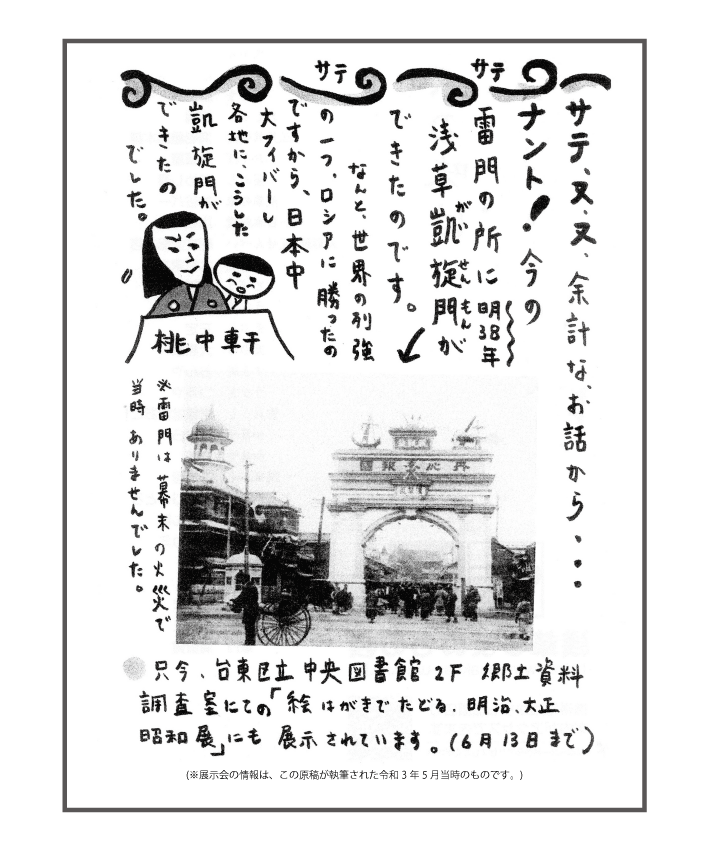 サテ
サテ
サテ、又、又、余計な、お話から・・・
ナント！今の
雷門の所に明38年
浅草凱旋門が
がいせんもん
できたのです。
なんと、世界の列強
の一つ、ロシアに勝ったの
ですから、日本中
大フィバーし
各地に、こうした
凱旋門が
できたの
でした。
桃中軒
※雷門は幕末の火災で
当時ありませんでした。
只今、台東区立中央図書館2F 郷土資料
調査室にての「絵はがきでたどる、明治、大正
昭和展」にも展示されています。(6月13日まで)
(※展示会の情報は、この原稿が執筆された令和3年5月当時のものです。)